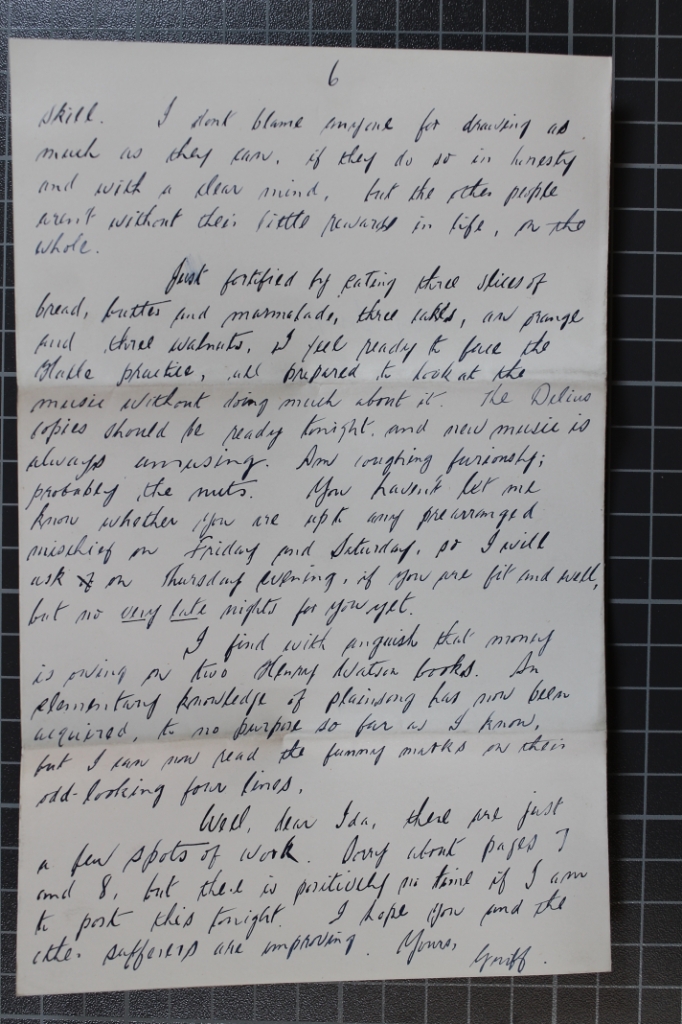 6
skill. I dont blame anyone for drawing as
much as they can, if they do so in honesty
and with a clear mind, but the other people
aren't without their little rewards in life, on the
whole.
Just fortified by eating three slices of
bread, butter and marmalade, three cakes, an orange
and three walnuts, I feel ready to face the
Hallé practice, all prepared to look at the
music without doing much about it. The Delius
copies should be ready tonight, and new music is
always amusing. Am coughing furiously;
probably the nuts. You haven't let me
know whether you are upto any prearranged
mischief on Friday and Saturday, so I will
ask on Thursday evening, if you are fit and well,
but no very late nights for you yet.
I find with anguish that money
is owing on two Henry Watson books. An
elementary knowledge of plainsong has now been
acquired, to no purpose so far as I know,
but I can now read the funny marks on their
odd-looking four lines.
Well, dear Ida, there are just
a few spots of work. Sorry about pages 7
and 8, but there is positively no time if I am
to post this tonight. I hope you and the
other sufferers are improving. Yours,
Griff.